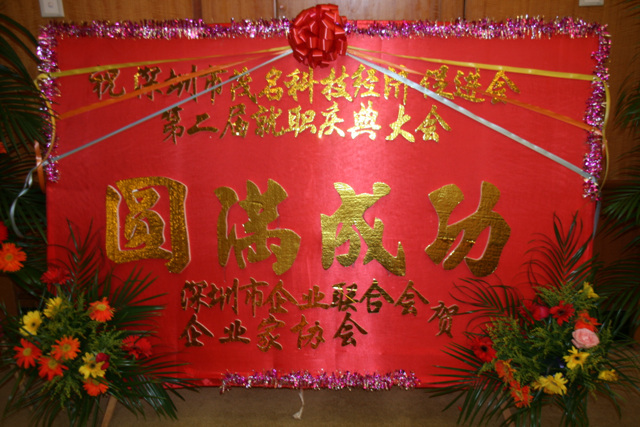 祝深圳市茂名科技经济促进会
第二届就职庆典大会
圆满成功
深圳市企业联合会
企业家协会 贺